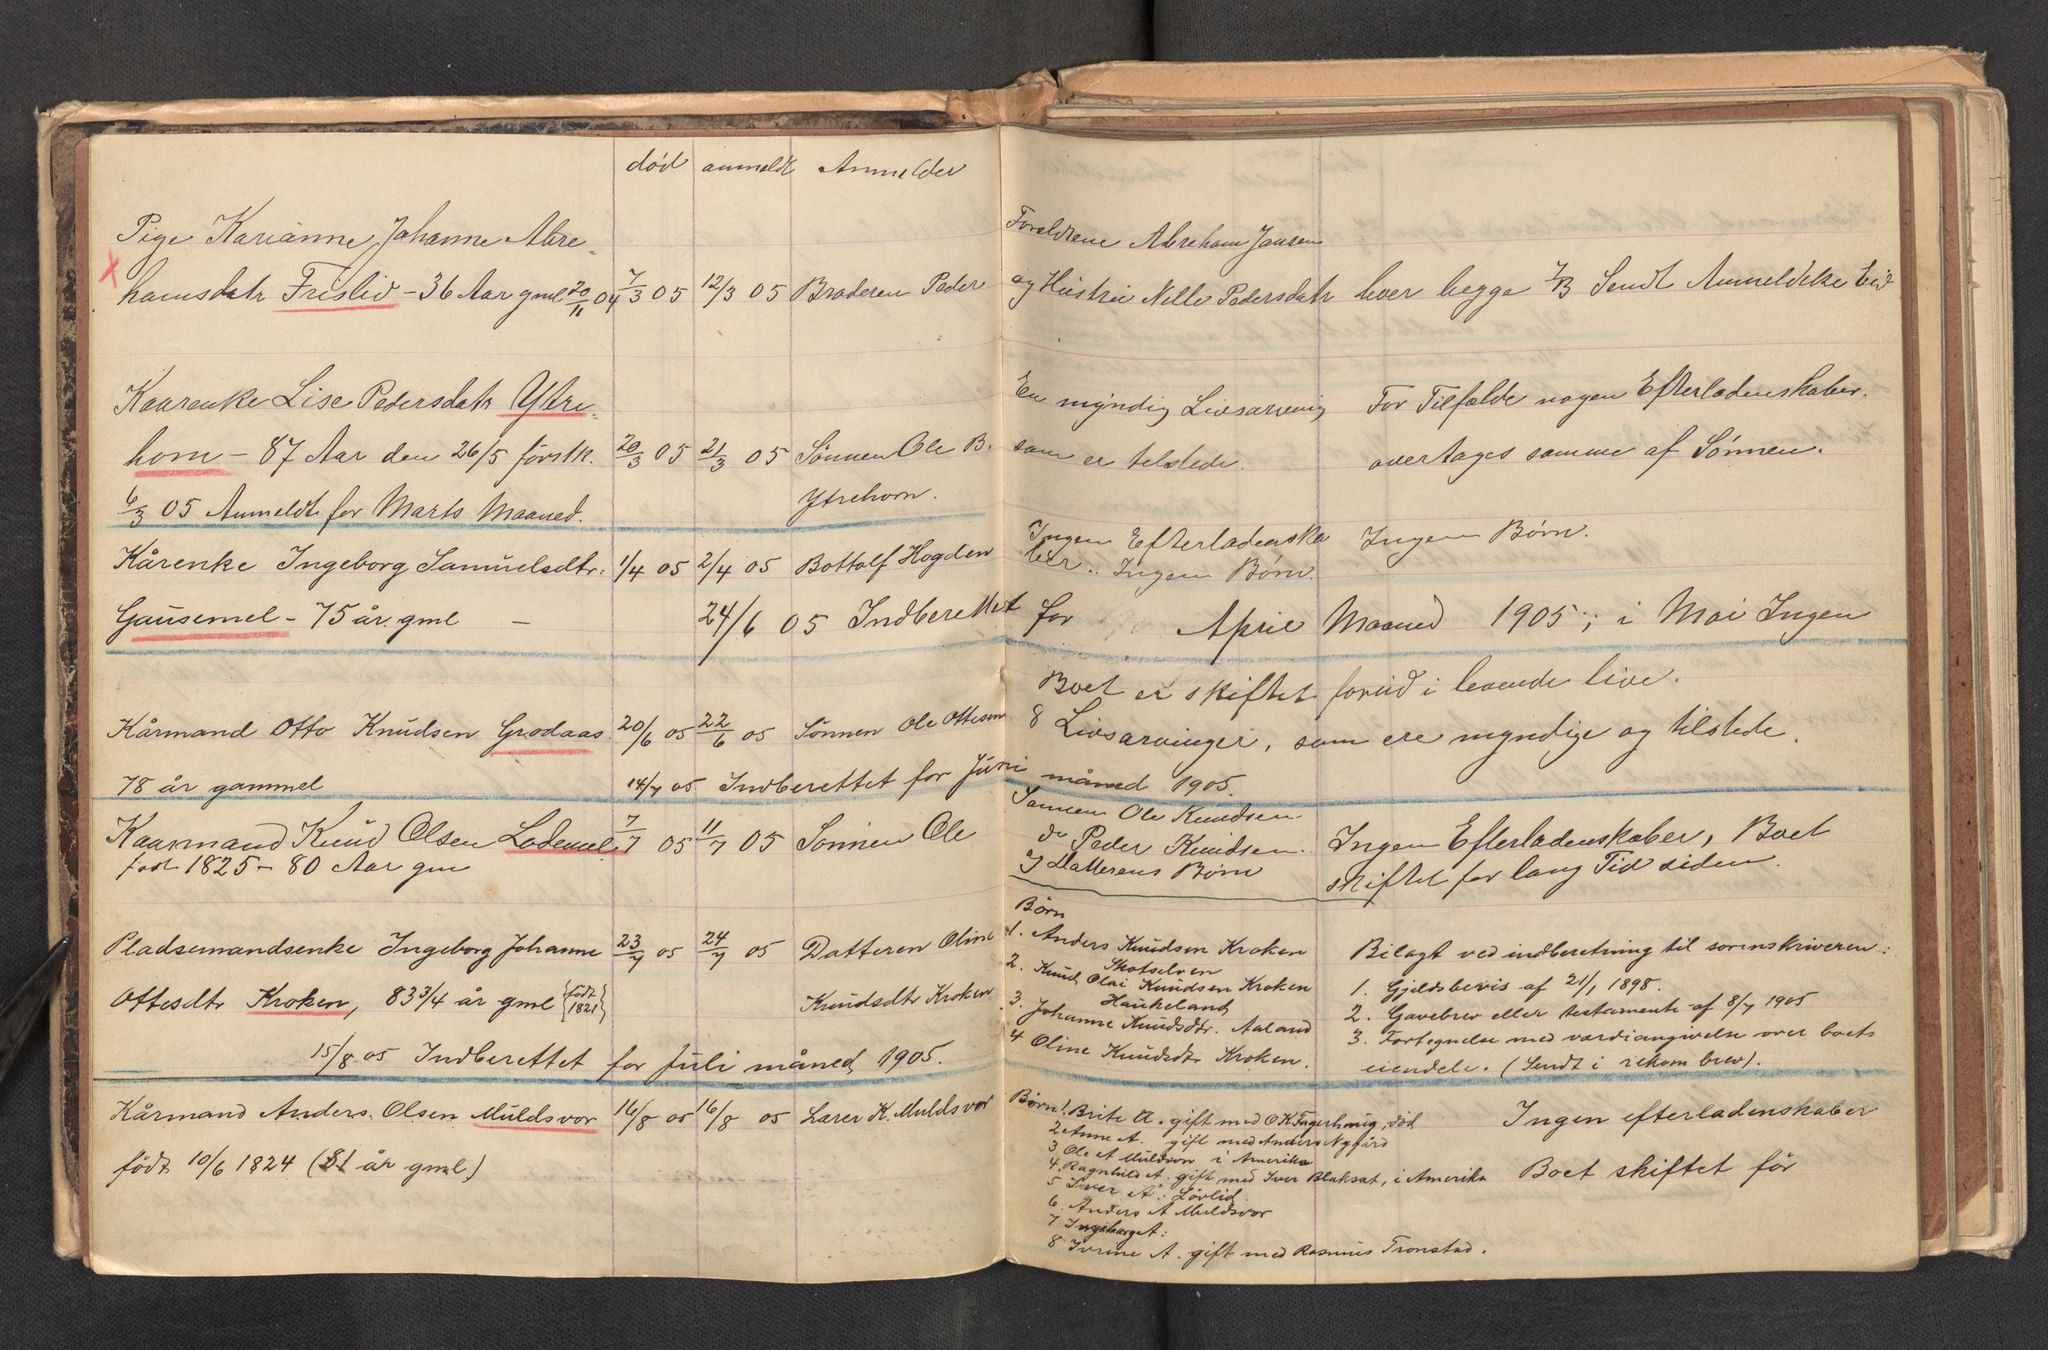 død anmeldt Anmelder
Pige Karianne Johanne Abre-
hamsdatr Frislid - 36 Aar gml 20/11 04 7/3 05 12/3 05 Broderen Peder
Kaarenke Lise Pedersdatr Ytre-
horn - 87 Aar den 26/5 førstk. 20/3 05 21/3 05 Sønnen Ole B.
Ytrehorn.
6/3 05 Anmeldt for Marts Maaned.
Kårenke Ingeborg Samuelsdtr. 1/4 05 2/4 05 Bottolf Hogden
Gausemel - 75 år gml - 24/6 05 Indberettet
Kårmand Otto Knudsen Grodaas 20/6 05 22/6 05 Sønnen Ole Ottesen
78 år gammel 14/7 05 Indberettet for Juni
Kaarmand Knud Olsen Lodemel 7/7 05 11/7 05 Sønnen Ole
født 1825 - 80 Aar gm
Pladsemandsenke Ingeborg Johanne 23/7 05 24/7 05 Datteren Oline
Ottesdtr Kroken, 83 3/4 år gml {født 1821} Knudsdtr Kroken
15/8 05 Indberettet for Juli måned 1905.
Kårmand Anders Olsen Muldsvor 16/8 05 16/8 05 Lærer K. Muldsvor
født 10/6 1824 (81 år gml)
Forældrene Abreham Jansen
og Hustru Nille Pedersdatr lever begge 7/3 Sendt Anmeldelse Eid
En myndig Livsarving For Tilfælde nogen Efterladenskaber.
som er tilstede. overtages samme af Sønnen.
Ingen Efterladenska Ingen Børn.
ber. Ingen Børn.
for April Maaned 1905; i Mai Ingen
Boet er skiftet forud i levende live.
8 Livsarvinger, som ere myndige og tilstede.
måned 1905.
Sønnen Ole Knudsen
do Peder Knudsen. Ingen Efterladenskaber, Boet
7 Datterens Børn skiftet for lang Tid siden.
Børn
1. Anders Knudsen Kroken Bilagt ved indberetning til sorenskriveren:
Skotselven
2. Knud Olai Knudsen Kroken 1. Gjeldsbevis af 21/1 1898.
Haukeland
3. Johanne Knudsdtr. Aaland 2. Gavebrev eller testamente af 8/7 1905
4 Oline Knudsdtr Kroken. 3. Fortegnelse med værdiangivelse over boets
eiendele. (Sendt i rekom brev).
Børn 1. Brite A. gift med O K Fagerhaug, død Ingen efterladenskaber
2 Anne A. gift med Anders Nygård
3 Ole A Muldsvor i Amerika
4. Ragnhild A. gift med Iver Blaksat, i Amerika Boet skiftet før
5 Iver A. Løvlid
6. Anders A Muldsvor
7 Ingeborg A:
8 Ivrine A. gift med Rasmus Tronstad.